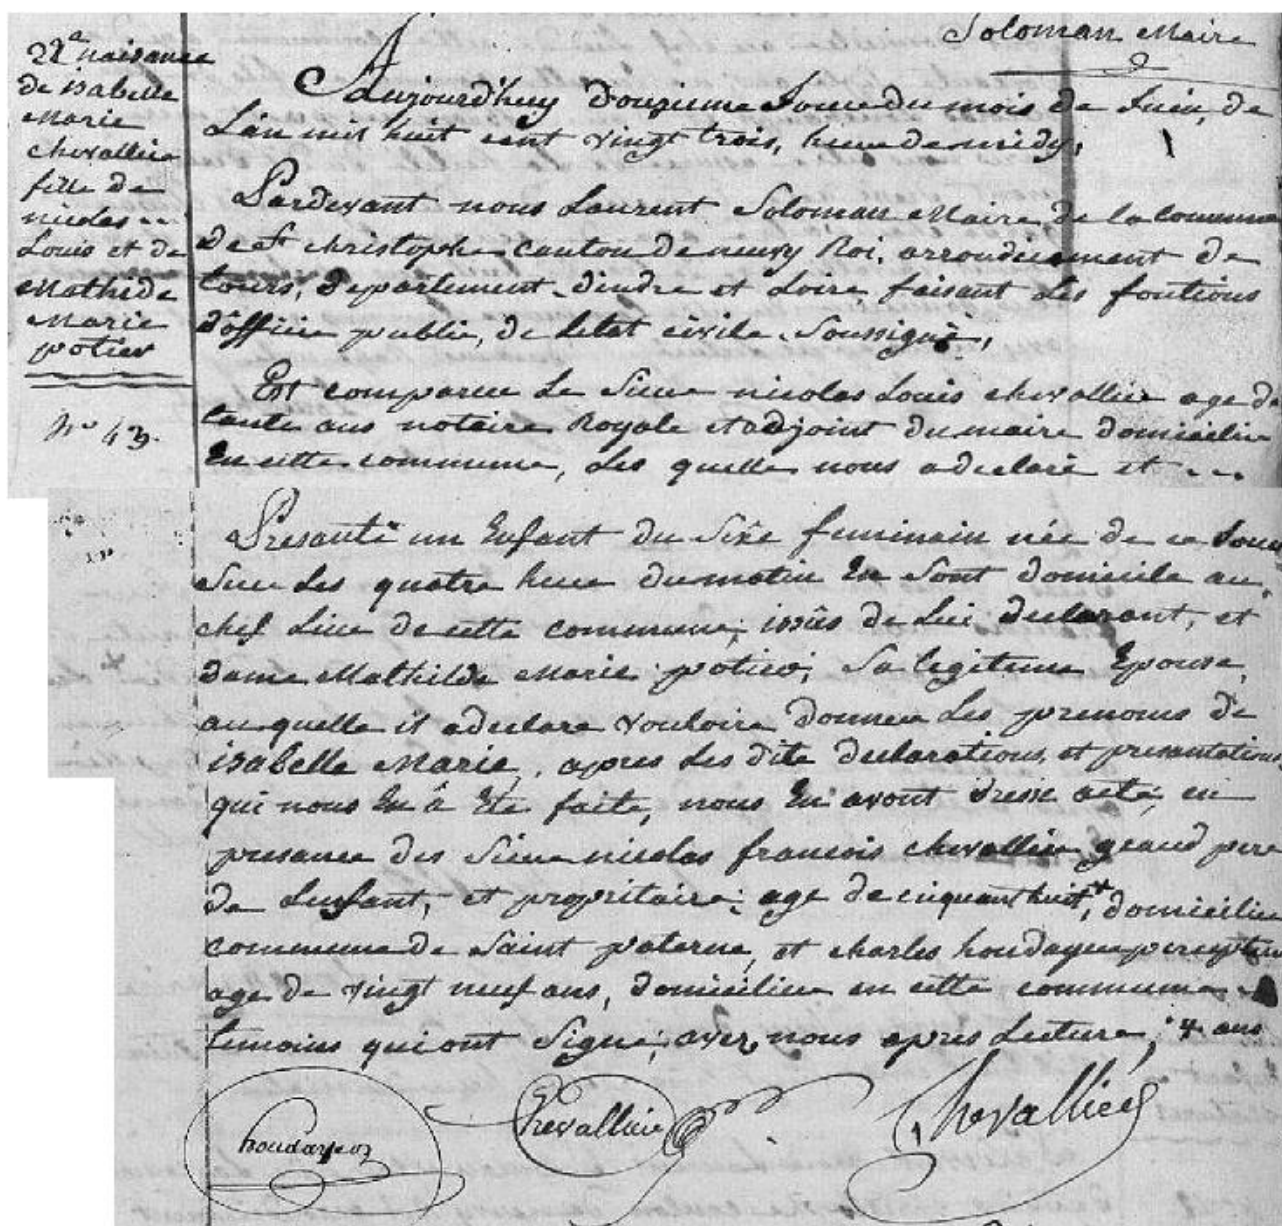 Soloman Maire
22e naisance
de isabelle
Marie
chevallier
fille de
nicolas
Louis et de
Mathilde
Marie
potier
No 43.
Aujourd'huy douzieme Jour du mois de Juin, de
L'an mil huit cent vingt trois, heure de midy,
Pardevant nous Laurent Soloman Maire de la Commune
de St christophe canton de neuvy Roi, arrondissement de
tours, Departement dindre et Loire, faisant Les fontions
d'officier public, de letat civile Soussigné,
Est comparue Le Sieur nicolas Louis chevallier age de
tante ans notaire Royale et adjoint du maire domicilie
En cette commune, Les quelle nous a declaré et
Presanté un Enfant du Sixe feminain née de ce Jour
Sur Les quatre heure du matin En Sont domicile au
chef Lieu de cette commune, issûs de Lui declarant, et
dame Mathilde Marie potier, Sa legitime Epouse,
au quelle il a declare vouloire donner Les prenoms de
isabelle Marie, apres Les dite declarations et presantations
qui nous En â Eté faite, nous En avont dresse acte, en
presance des Sieur nicolas francois chevallier grand pere
de Lenfant, et propritaire, age de cinquant huit +, domicilie
commune de Saint paterne, et charles houdayer percepteur
age de vingt neuf ans, domicilier en cette commune
temoins qui ont Signé, avec nous apres Lecture, + ans
houdayer Chevallier Chevallier